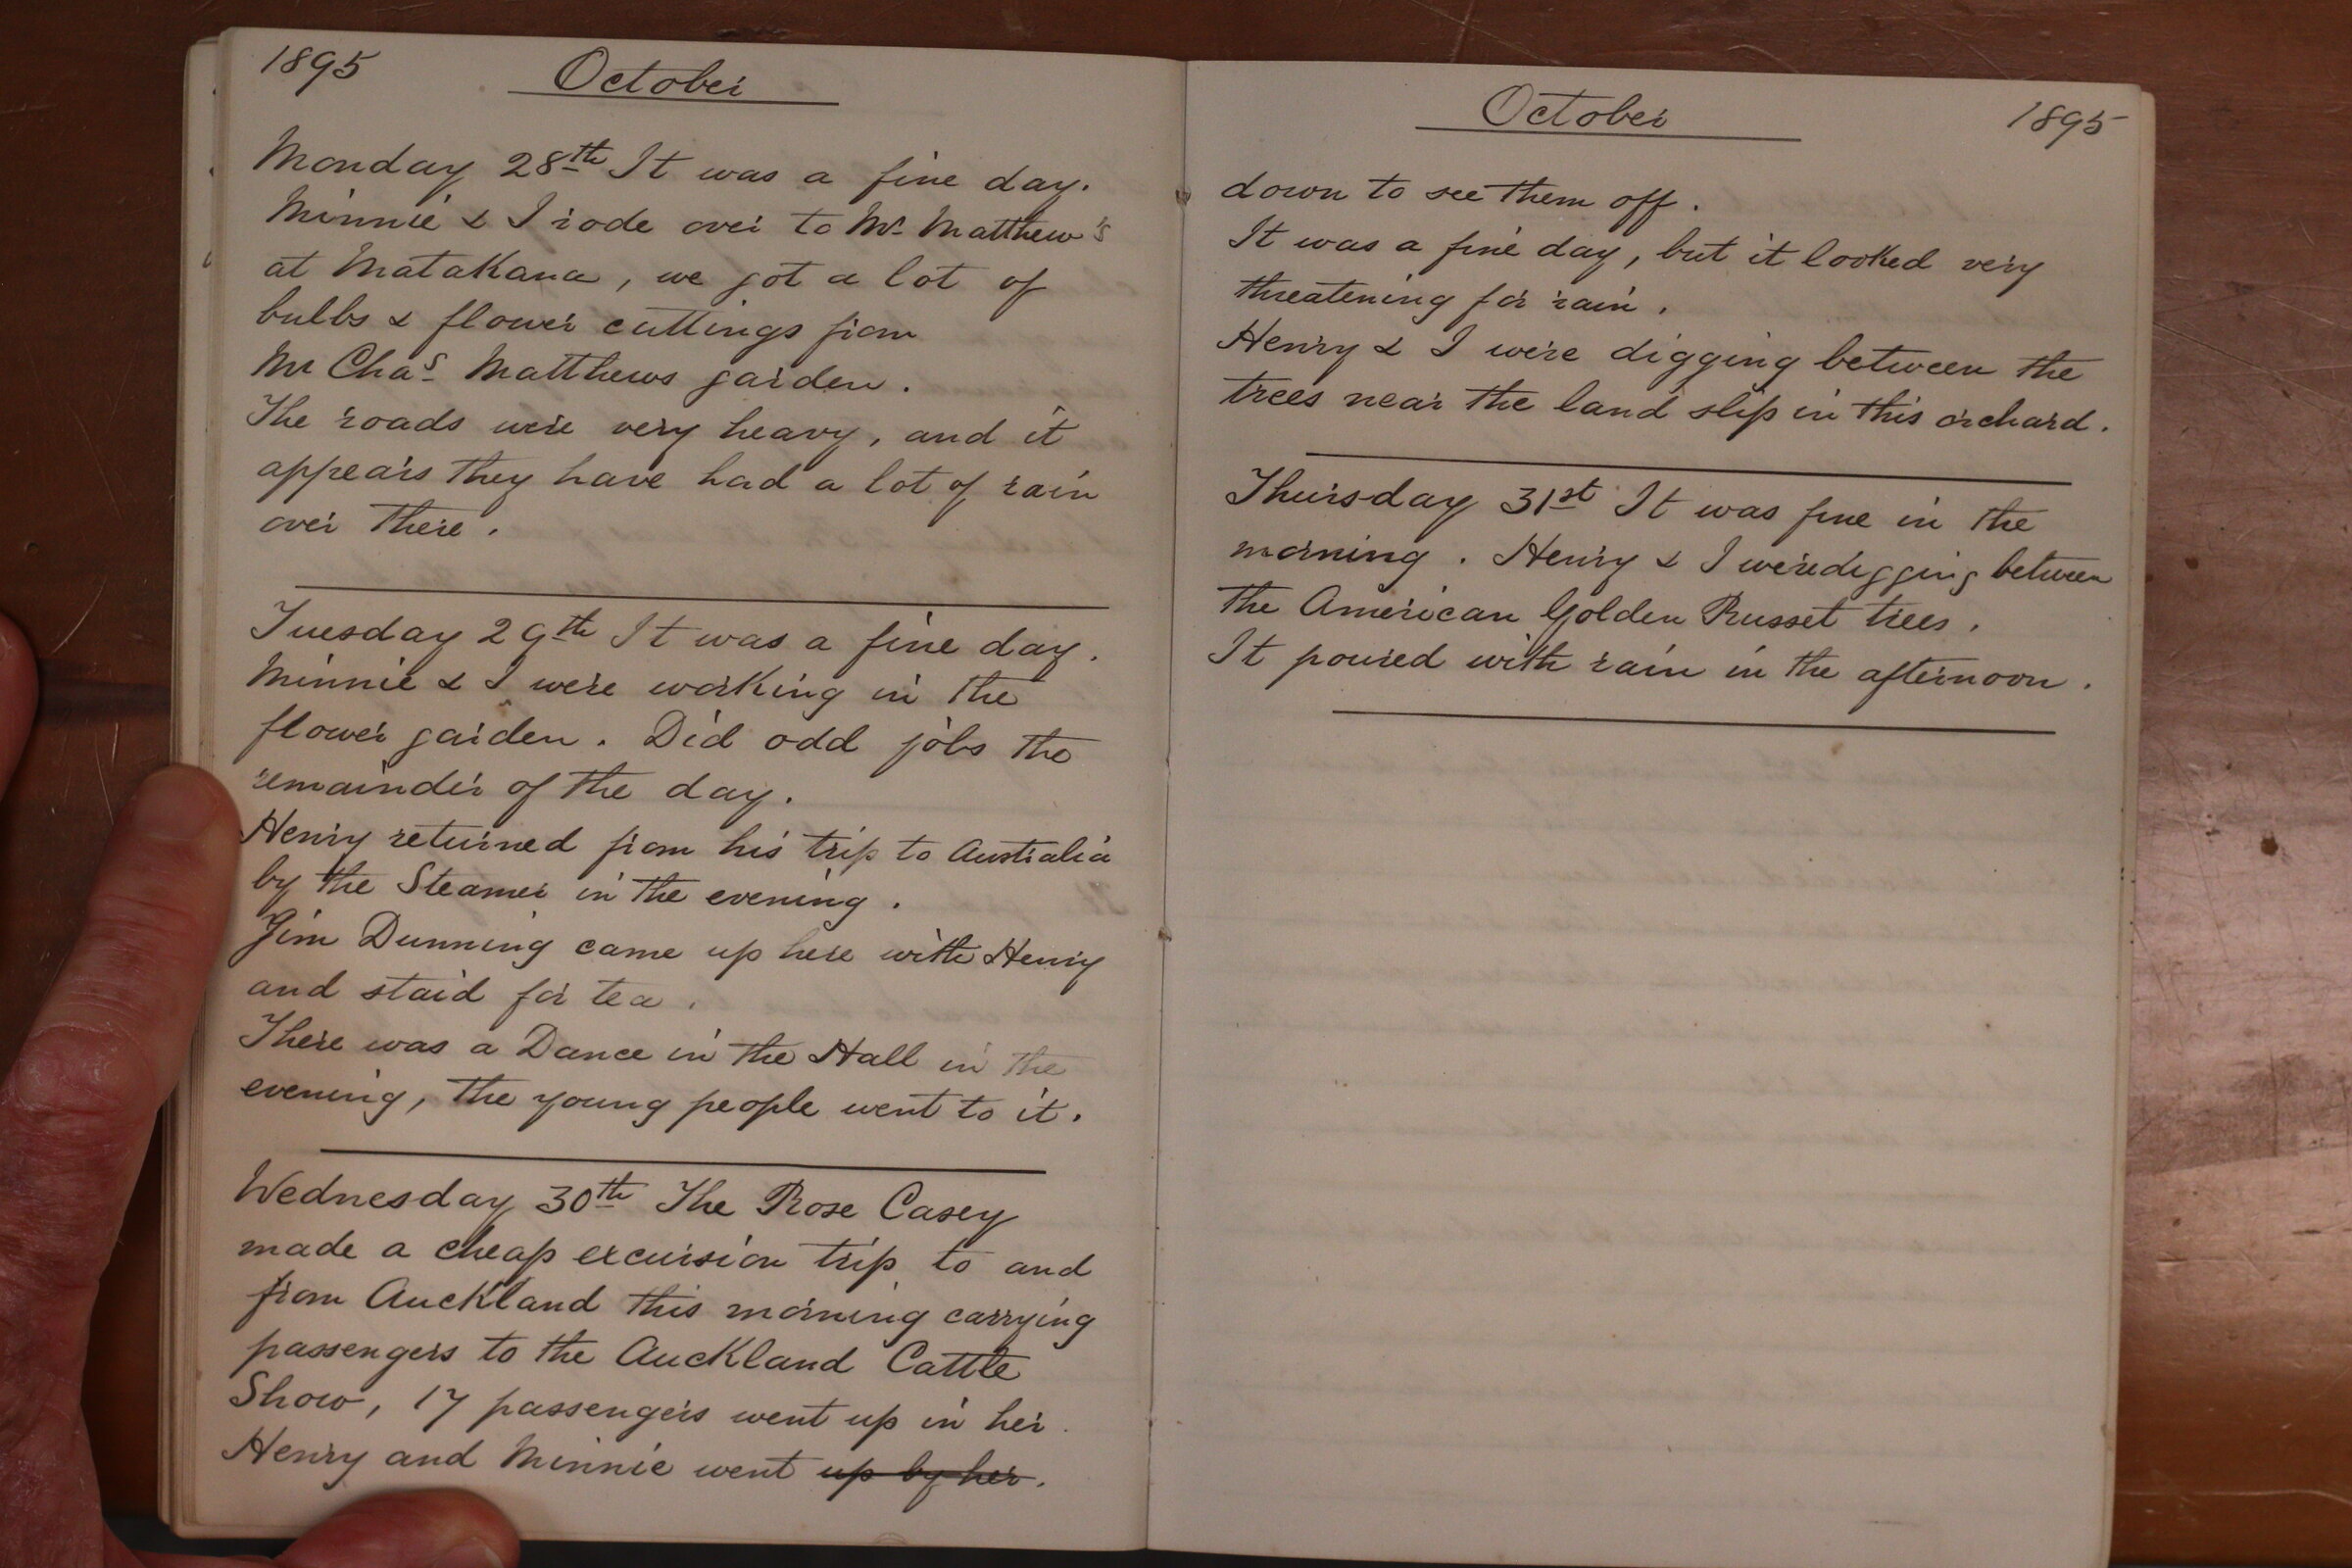 1895 October
Monday 28th It was a fine day.
Minnie & I rode over to Mr Matthew's
at Matakana, we got a lot of
bulbs & flower cuttings from
Mr Chas Matthews garden.
The roads were very heavy, and it
appears they have had a lot of rain
over there.
Tuesday 29th It was a fine day.
Minnie & I were working in the
flower garden. Did odd jobs the
remainder of the day.
Henry returned from his trip to Australia
by the Steamer in the evening.
Jim Dunning came up here with Henry
and staid for tea.
There was a Dance in the Hall in the
evening, the young people went to it.
Wednesday 30th The Rose Casey
made a cheap excursion trip to and
from Auckland this morning carrying
passengers to the Auckland Cattle
Show, 17 passengers went up in her.
Henry and Minnie went up by her.
October 1895
down to see them off.
It was a fine day, but it looked very
threatening for rain.
Henry & I were digging between the
trees near the land slip in this orchard.
Thursday 31st It was fine in the
morning. Henry & I were digging between
the American Golden Russet trees.
It poured with rain in the afternoon.